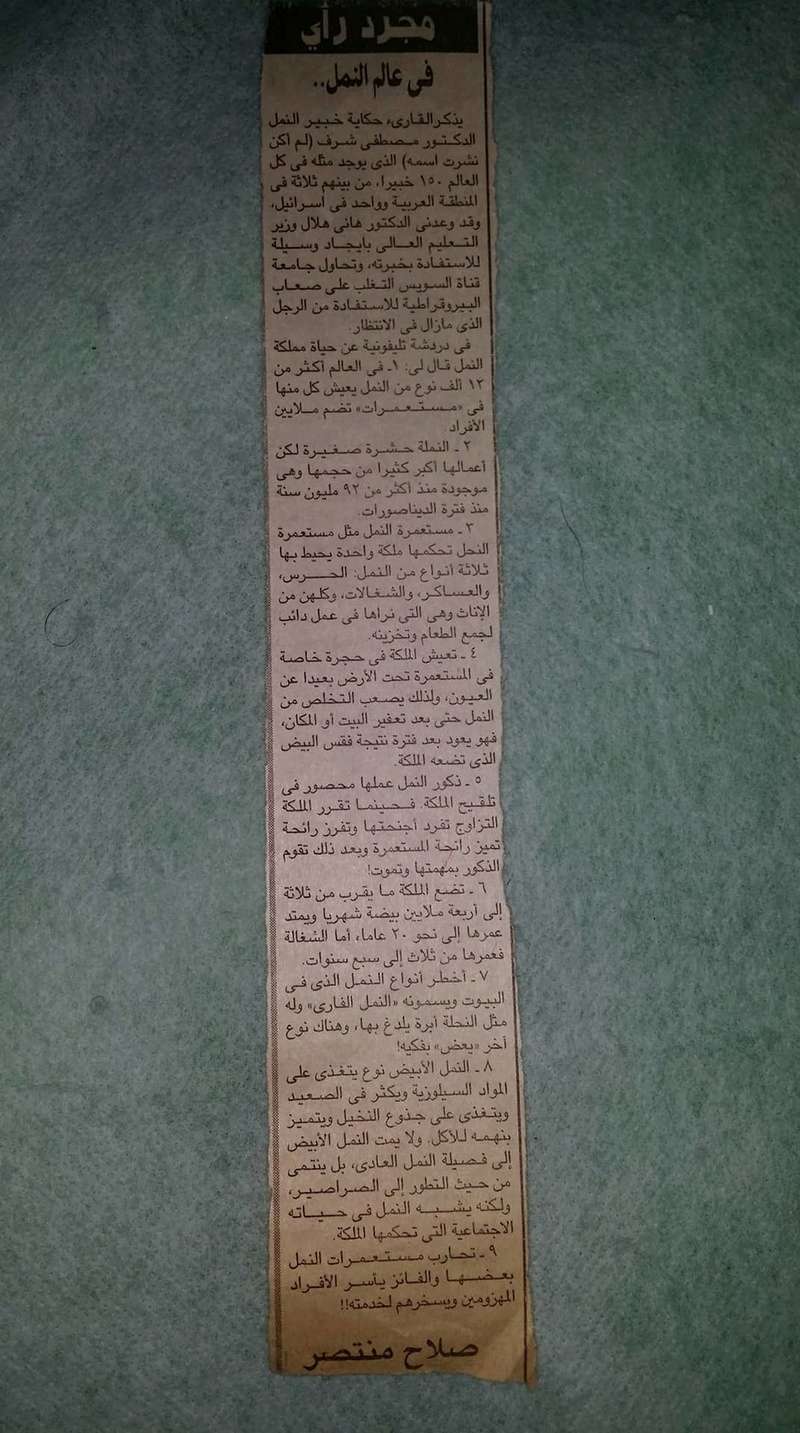 مجرد رأي
فى عالم النمل..
يذكر القارىء حكاية خبير النمل
الدكتور مصطفى شرف (لم أكن
نشرت اسمه) الذى يوجد مثله فى كل
العالم ١٥٠ خبيرا، من بينهم ثلاثة فى
المنطقة العربية وواحد فى اسرائيل،
وقد وعدنى الدكتور هانى هلال وزير
التعليم العالى بايجاد وسيلة
للاستفادة بخبرته، وتحاول جامعة
قناة السويس التغلب على صعاب
البيروقراطية للاستفادة من الرجل
الذى مازال فى الانتظار.
فى دردشة تليفونية عن حياة مملكة
النمل قال لى: ١ـ فى العالم أكثر من
١٢ ألف نوع من النمل يعيش كل منها
فى «مستعمرات» تضم ملايين
الأفراد
٢ ـ النملة حشرة صغيرة لكن
أعمالها أكبر كثيرا من حجمها وهى
موجودة منذ أكثر من ٩٢ مليون سنة
منذ فترة الديناصورات.
٣ ـ مستعمرة النمل مثل مستعمرة
النحل تحكمها ملكة واحدة يحيط بها
ثلاثة أنواع من النمل: الحرس،
والعساكر، والشغالات، وكلهن من
الإناث وهى التى نراها فى عمل دائب
لجمع الطعام وتخزينه.
٤ ـ تعيش الملكة فى حجرة خاصة
فى المستعمرة تحت الأرض بعيدا عن
العيون، ولذلك يصعب التخلص من
النمل حتى بعد تعفير البيت أو المكان،
فهو يعود بعد فترة نتيجة فقس البيض
الذى تضعه الملكة.
٥ ـ ذكور النمل عملها محصور فى
تلقيح الملكة. فحينما تقرر الملكة
التزاوج تفرد أجنحتها وتفرز رائحة
تميز رائحة المستعمرة وبعد ذلك تقوم
الذكور بمهمتها وتموت!
٦ ـ تضع الملكة ما يقرب من ثلاثة
إلى أربعة ملايين بيضة شهريا ويمتد
عمرها إلى نحو ٢٠ عاما، أما الشغالة
فعمرها من ثلاث إلى سبع سنوات.
٧ ـ أخطر أنواع النمل الذى فى
البيوت ويسمونه «النمل الفارى» وله
مثل النحلة أبرة يلدغ بها، وهناك نوع
آخر «يعض» بفكيه!
٨ ـ النمل الأبيض نوع يتغذى على
المواد السيلوزية ويكثر فى الصعيد
ويتغذى على جذوع النخيل ويتميز
بنهمه للأكل. ولا يمت النمل الأبيض
إلى فصيلة النمل العادى، بل ينتمى
من حيث التطور إلى الصراصير،
ولكنه يشبه النمل فى حياته
الاجتماعية التى تحكمها الملكة.
٩ ـ تحارب مستعمرات النمل
بعضها والفائز يأسر الأفراد
المهزومين ويسخرهم لخدمته!!
صلاح منتصر